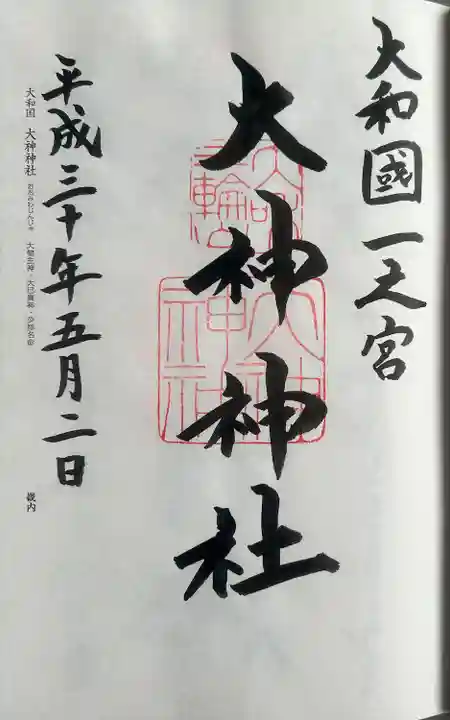 大和國一之宮
大神神社
平成三十年五月二日
大和国 大神神社 おおみわじんじゃ 大物主神・大己貴神・少彦名命
畿内